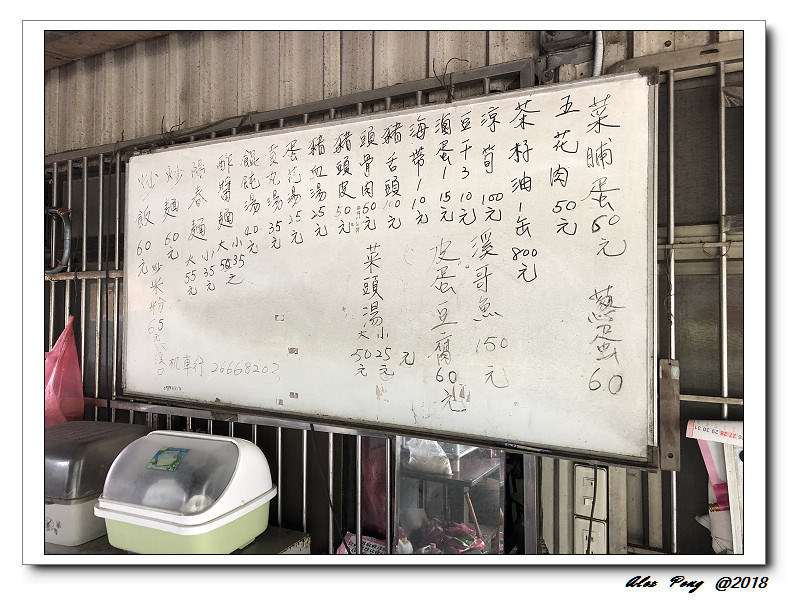 菜脯蛋60元
蔥蛋60
五花肉50元
茶籽油1缶800元
涼筍100元
溪哥魚150元
豆干3 10元
滷蛋1 15元
皮蛋豆腐60元
海帶1 10元
豬舌頭100元
頭骨肉50元
菜頭湯 大50元 小25元
元
豬頭皮50元
豬血湯25元
蛋花湯25元
貢丸湯35元
餛飩湯40元
酢醬麵 大 小35元
陽春麵 大55元 小35元
炒麵60元
炒米粉65元
炒飯60元
溪口機車行
Alex Peng @2018